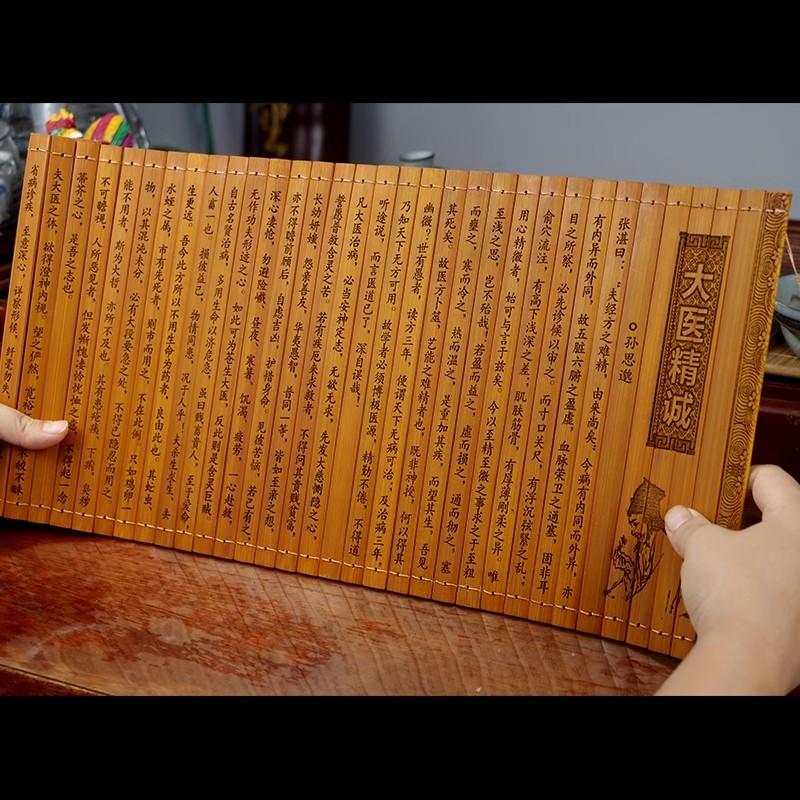 大医精诚
○孙思邈
张湛曰:“夫经方之难精,由来尚矣。今病有内同而外异,亦
有内异而外同,故五脏六腑之盈虚,血脉荣卫之通塞,固非耳
目之所察,必先诊候以审之。而寸口关尺,有浮沉弦紧之乱;
俞穴流注,有高下浅深之差;肌肤筋骨,有厚薄刚柔之异。唯
用心精微者,始可与言于兹矣。今以至精至微之事求之于至粗
至浅之思,岂不殆哉。若盈而益之,虚而损之,通而彻之,塞
而壅之,寒而冷之,热而温之,是重加其疾,而望其生,吾见
其死矣。故医方卜筮,艺能之难精者也,既非神授,何以得其
幽微?世有愚者,读方三年,便谓天下无病可治;及治病三年,
乃知天下无方可用。故学者必须博极医源,精勤不倦,不得道
听途说,而言医道已了,深自误哉!
凡大医治病,必当安神定志,无欲无求,先发大慈恻隐之心,
誓愿普救含灵之苦。若有疾厄来求救者,不得问其贵贱贫富,
长幼妍媸,怨亲善友,华夷愚智,普同一等,皆如至亲之想,
亦不得瞻前顾后,自虑吉凶,护惜身命。见彼苦恼,若己有之,
深心凄怆,勿避险巇、昼夜、寒暑、饥渴、疲劳,一心赴救,
无作功夫形迹之心。如此可为苍生大医,反此则是含灵巨贼。
自古名贤治病,多用生命以济危急,虽曰贱畜贵人,至于爱命,
人畜一也。损彼益己,物情同患,况于人乎!夫杀生求生,去
生更远。吾今此方所以不用生命为药者,良由此也。其虻虫、
水蛭之属,市有先死者,则市而用之,不在此例。只如鸡卵一
物,以其混沌未分,必有大段要急之处,不得已隐忍而用之。
能不用者,斯为大哲,亦所不及也。其有患疮痍、下痢,臭秽
不可瞻视,人所恶见者,但发惭愧凄怜忧恤之意,不得起一念
蒂芥之心,是吾之志也。
夫大医之体,欲得澄神内视,望之俨然,宽裕 不皎不昧
省病诊疾,至意深心,详察形候,纤毫勿失,